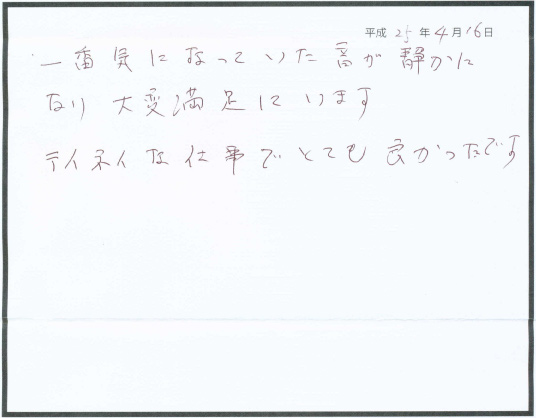 平成 25 年 4 月 16 日
一番気になっていた音が静かに
なり 大変満足しています
テイネイな仕事でとても良かったです